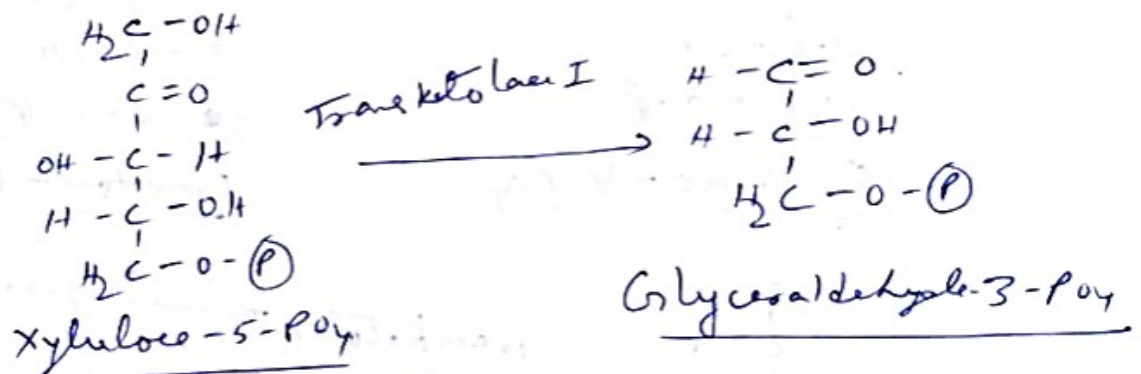 H₂C-OH
C=O
OH-C-H
H-C-OH
H₂C-O-Ⓟ
Xylulose-5-PO4
Transketolase I
H-C=O
H-C-OH
H₂C-O-Ⓟ
Glyceraldehyde-3-PO4